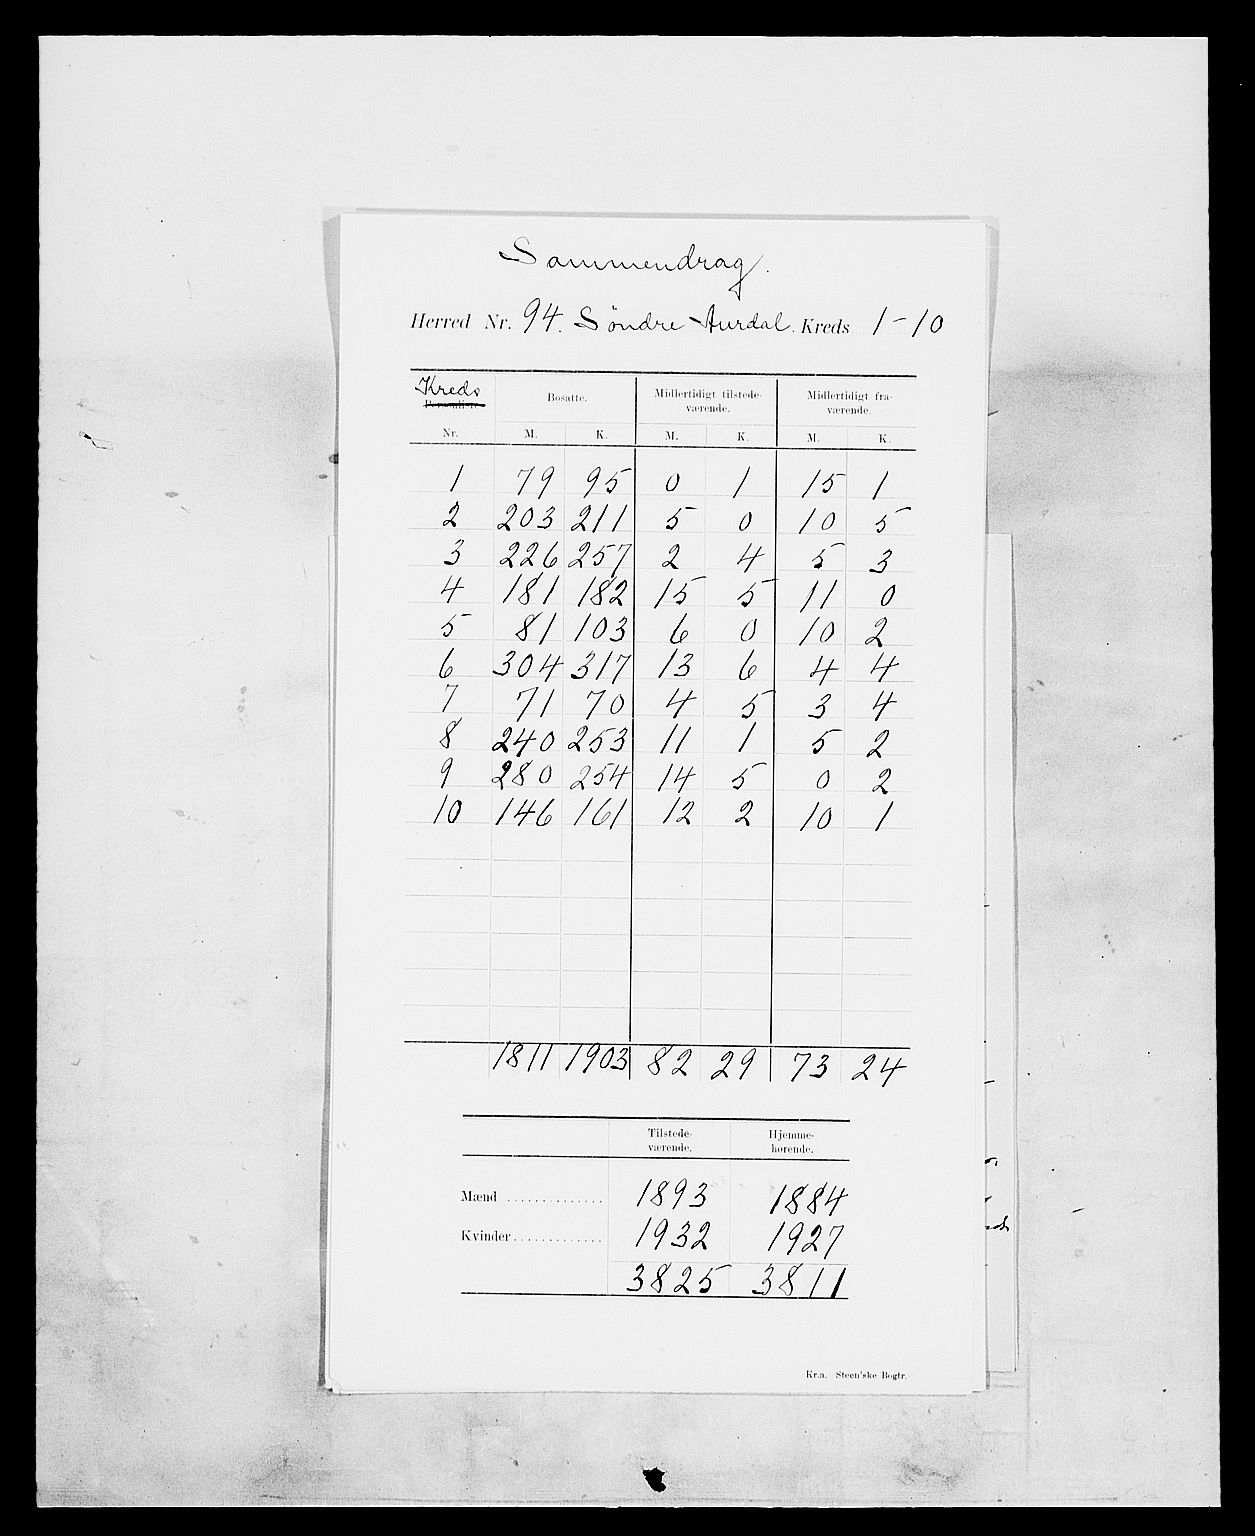 Sammendrag.
Herred Nr. 94. Söndre Aurdal. Kreds 1-10
Kreds Bosatte. Midlertidigt tilstede- Midlertidigt fra-
Personliste værende. værende.
Nr. M. K. M. K. M. K.
1 79 95 0 1 15 1
2 203 211 5 0 10 5
3 226 257 2 4 5 3
4 181 182 15 5 11 0
5 81 103 6 0 10 2
6 304 317 13 6 4 4
7 71 70 4 5 3 4
8 240 253 11 1 5 2
9 280 254 14 5 0 2
10 146 161 12 2 10 1
1811 1903 82 29 73 24
Tilstede- Hjemme-
værende. hørende.
Mænd .............. 1893 1884
Kvinder ............. 1932 1927
3825 3811
Kr.a. Steen'ske Bogtr.